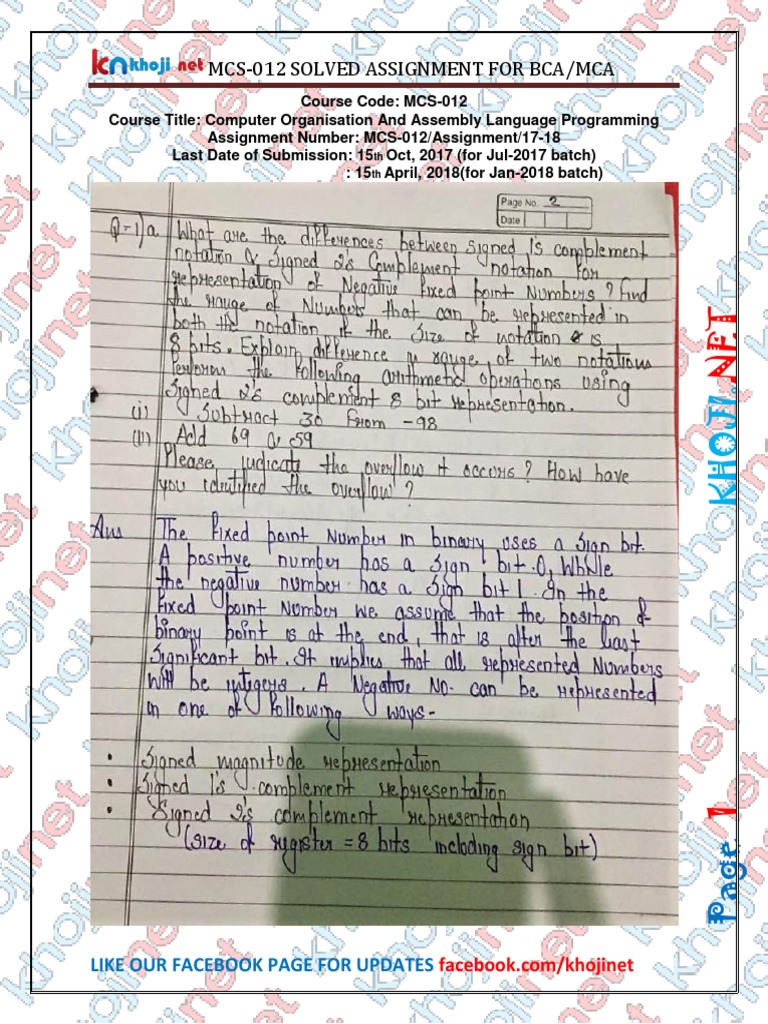 kn khoji net MCS-012 SOLVED ASSIGNMENT FOR BCA/MCA
Course Code: MCS-012
Course Title: Computer Organisation And Assembly Language Programming
Assignment Number: MCS-012/Assignment/17-18
Last Date of Submission: 15th Oct, 2017 (for Jul-2017 batch)
: 15th April, 2018(for Jan-2018 batch)
Page No. 2
Date
Q-1) a. What are the differences between signed 1s complement
notation & Signed 2's Complement notation for
representation of Negative fixed point Numbers? Find
the range of Numbers that can be represented in
both the notation if the size of notation is
8 bits. Explain difference in range of two notations
Perform the following arithmetic operations using
Signed 2's complement 8 bit representation.
(i) Subtract 30 from -98
(ii) Add 69 & 59
Please indicate the overflow it occurs? How have
you identified the overflow?
Ans The fixed point Number in binary uses a sign bit.
A positive number has a sign bit 0, While
the negative number has a sign bit 1. In the
fixed point Number we assume that the position of
binary point is at the end, that is after the last
significant bit. It implies that all represented Numbers
will be integers. A Negative No. can be represented
in one of following ways-
• Signed magnitude representation
• Signed 1's complement representation
• Signed 2's complement representation
(size of register = 8 bits including sign bit)
KHOJI.NET
Page 1
LIKE OUR FACEBOOK PAGE FOR UPDATES facebook.com/khojinet
khojinet